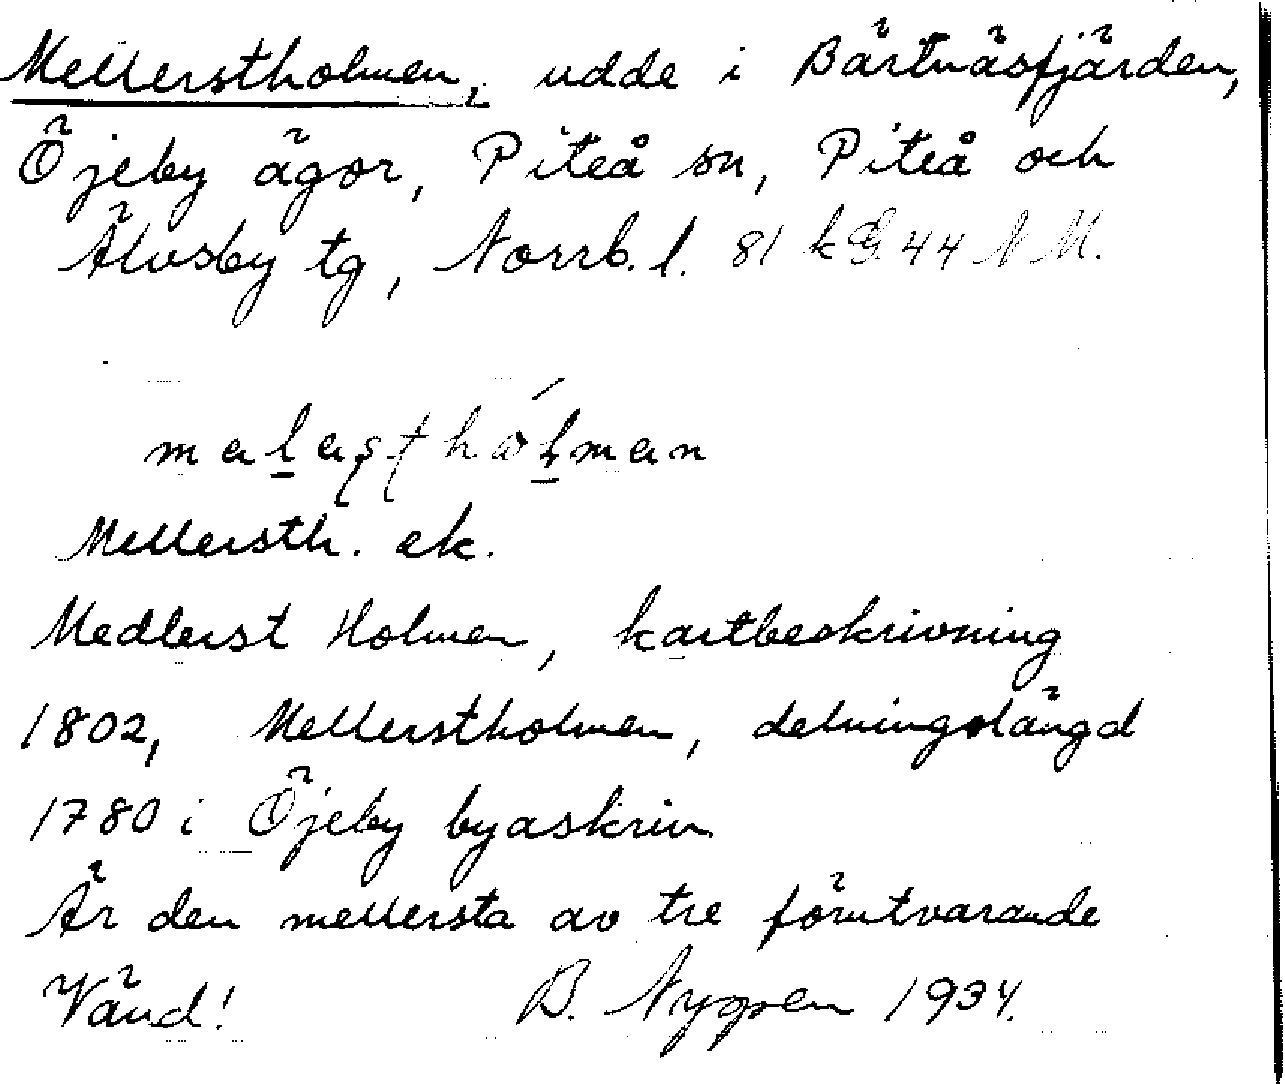 Mellerstholmen, udde i Bärtnäsfjärden,
Öjeby ägor, Piteå sn, Piteå och
Älvsby tg, Norrb. l. 81 k G. 44 N M.
Mellersth. ek.
Medlerst Holmen, kartbeskrivning
1802, Mellerstholmen, delningslängd
1780 i Öjeby byaskrin
Är den mellersta av tre förutvarande
Vänd! B. Nygren 1934.